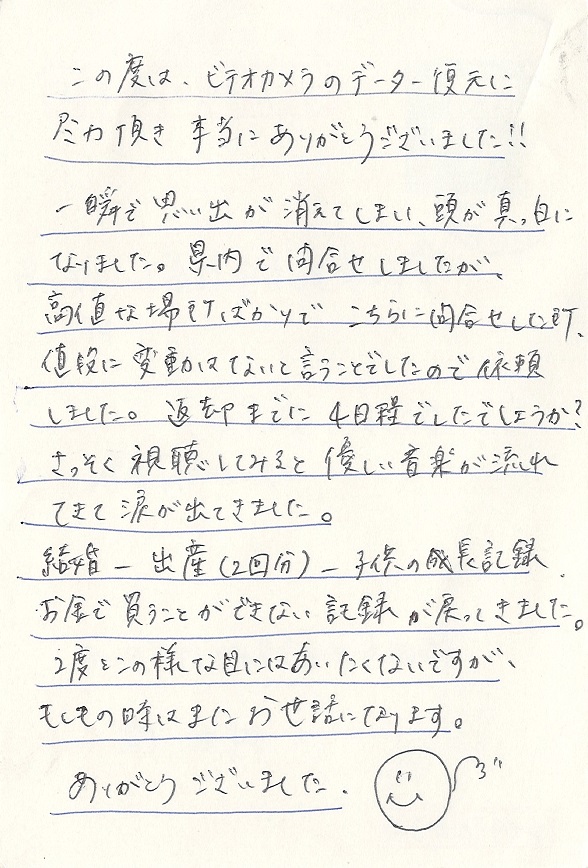 この度は、ビデオカメラのデーター復元に
尽力頂き 本当にありがとうございました!!
一瞬で思い出が消えてしまい、頭が真っ白に
なりました。県内で問合せしましたが、
高値な場所ばかりで こちらに問合せした所、
値段に変動はないと言うことでしたので依頼
しました。返却までに4日程でしたでしょうか?
さっそく視聴してみると優しい音楽が流れ
てきて涙が出てきました。
結婚ー出産(2回分)ー子供の成長記録
お金で買うことができない記録が戻ってきました。
2度とこの様な目にはあいたくないですが、
もしもの時はまたお世話になります。
ありがとうございました.